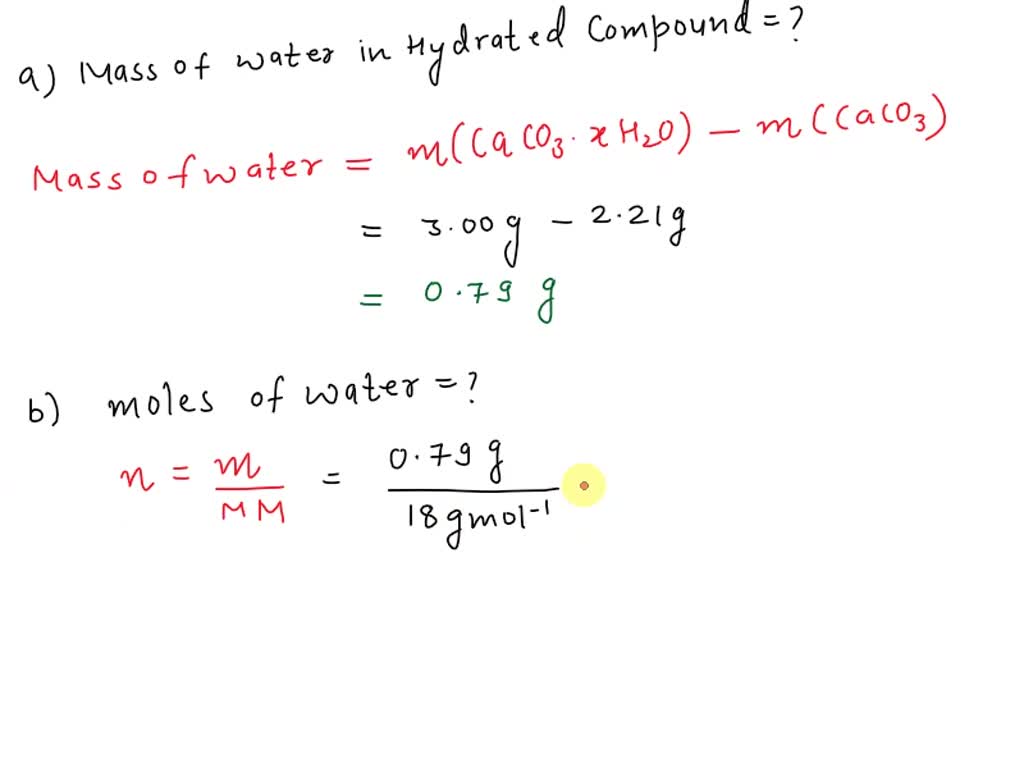 a) Mass of water in Hydrated Compound = ?
Mass of water = m(CaCO₃·xH₂O) − m(CaCO₃)
= 3.00 g − 2.21 g
= 0.79 g
b) moles of water = ?
n = m / MM = 0.79 g / 18 gmol⁻¹